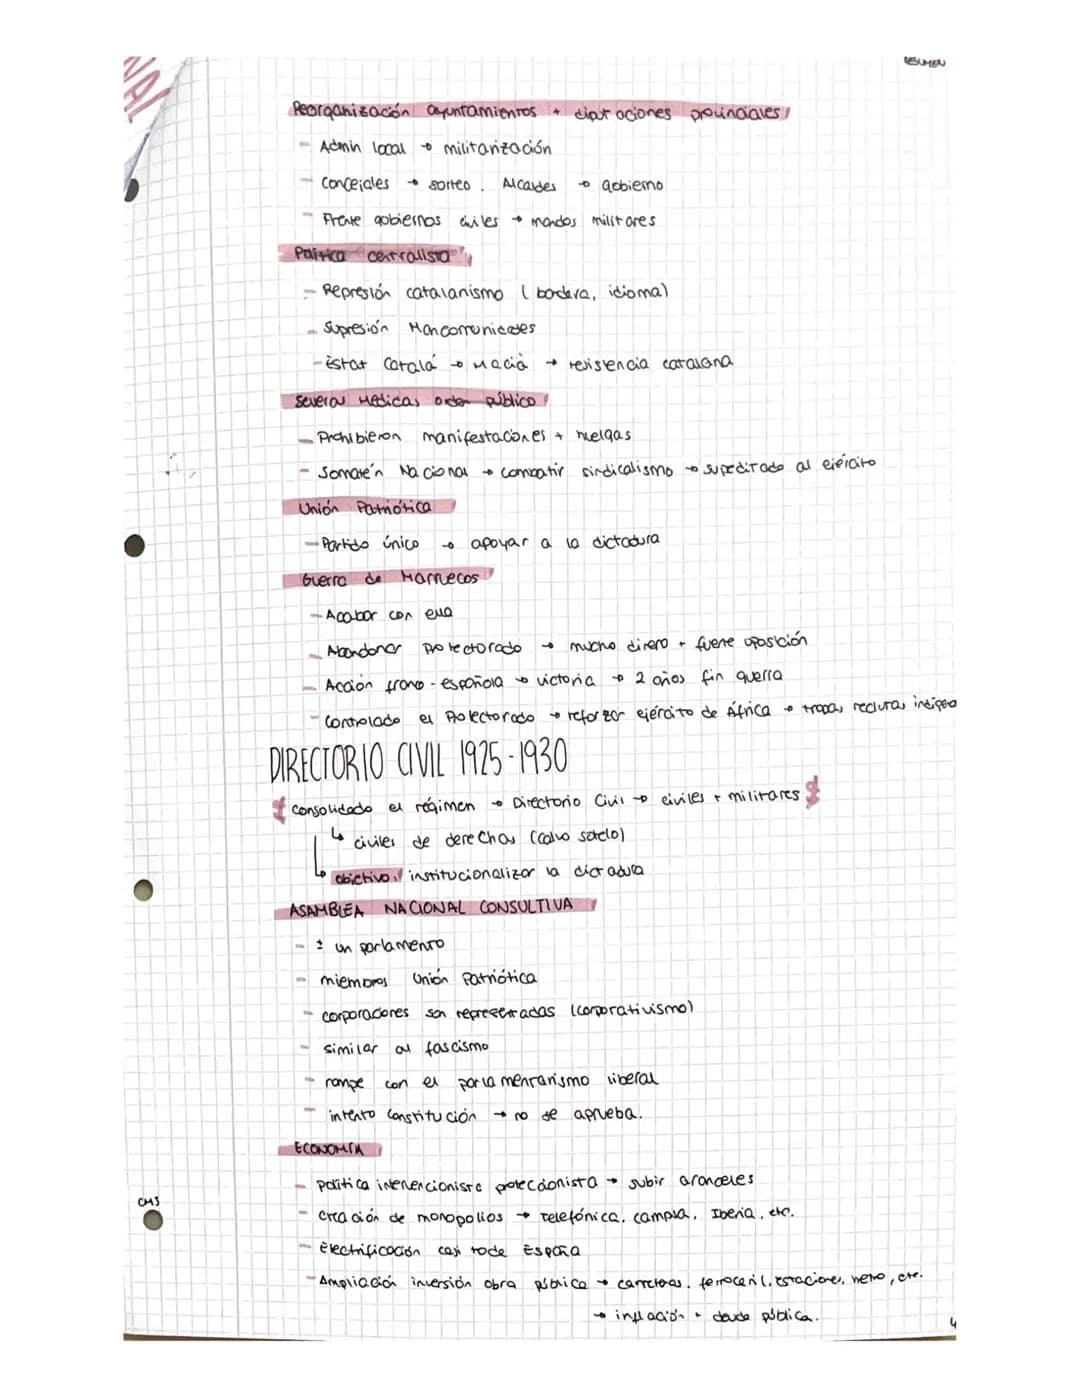 RESUMEN
NAL
Reorganización ayuntamientos + diputaciones provinciales
- Admin local → militarización
- Concejales → sorteo. Alcaldes → gobierno
- Frente gobiernos civiles → mandos militares
Política centralista
- Represión catalanismo (bandera, idioma)
- Supresión Mancomunidades
- Estat Catalá → Macià → resistencia catalana
Severas Medidas orden público
- Prohibieron manifestaciones + huelgas
- Somatén Nacional → combatir sindicalismo → supeditado al ejército
Unión Patriótica
- Partido único → apoyar a la dictadura
Guerra de Marruecos
- Acabar con ella
- Abandonar Protectorado → mucho dinero + fuerte oposición
- Acción franco-española → victoria → 2 años fin guerra
- Controlado el Protectorado → reforzar ejército de África → tropas reclutas indígena
DIRECTORIO CIVIL 1925-1930
Consolidado el régimen → Directorio Civil → civiles + militares
↳ civiles de derechas (calvo sotelo)
↳ objetivo: institucionalizar la dictadura
ASAMBLEA NACIONAL CONSULTIVA
- ± un parlamento
- miembros Unión Patriótica
- corporaciones son representadas (corporativismo)
- similar al fascismo
- rompe con el parlamentarismo liberal
- intento constitución → no se aprueba.
ECONOMÍA
- política intervencionista proteccionista → subir aranceles
- creación de monopolios → Telefónica, campsa, Iberia, etc.
- Electrificación casi toda España
- Ampliación inversión obra pública → carreteras, ferrocaril, estaciones, metro, etc.
→ inflación + deuda pública.
CMS
4